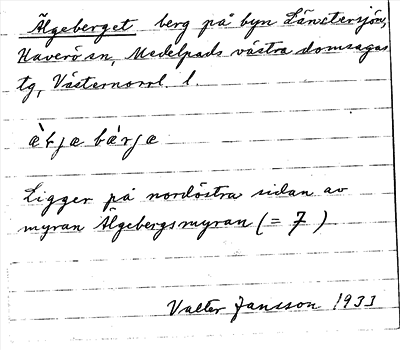 Älgeberget berg på byn Länstersjön,
Haverö sn, Medelpads västra domsagas
tg, Västernorrl. l.
Ligger på nordöstra sidan av
myran Älgebergsmyran (= 7)
Valter Jansson 1933